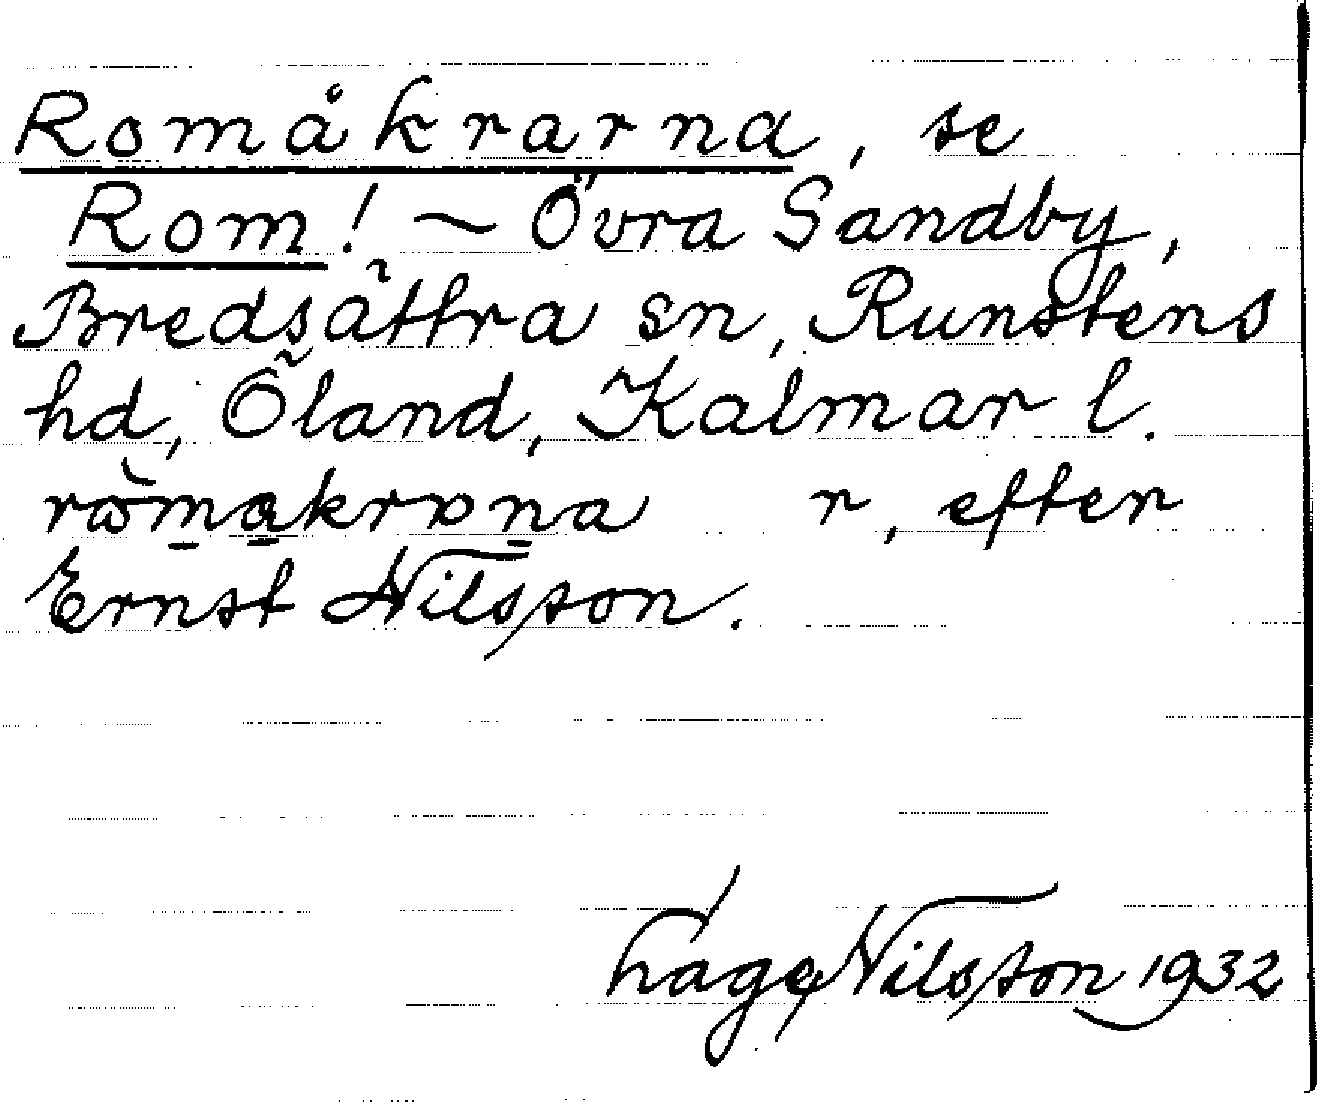 Romåkrarna, se
Rom! ~ Övra Sandby,
Bredsättra sn, Runstens
hd, Öland, Kalmar l.
r, efter
Ernst Nilsson.
Nilsson 1932